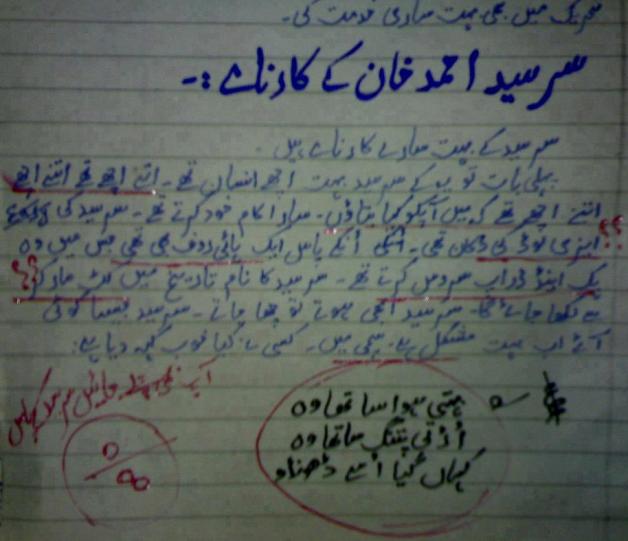 تحریک میں بھی بہت ساری خدمت کی۔
سر سید احمد خان کے کارنامے :-
سر سید کے بہت سارے کارنامے ہیں۔
پہلی بات تو یہ کہ سر سید بہت اچھے انسان تھے۔ اتنے اچھے تھے اتنے اچھے
اتنے اچھے تھے کہ میں آپکو کیا بتاؤں۔ سارا کام خود کرتے تھے۔ سر سید کی
ایزی لوڈ کی دکان تھی۔ انکے پاس ایک ہائی روف بھی تھی جس میں وہ
پک اینڈ ڈراپ سروس کرتے تھے۔ سر سید کا نام تاریخ میں مار کر
سے لکھا جائے گا۔ سر سید ابھی ہوتے تو چھا جاتے۔ سر سید جیسا کوئی
آئے اب بہت مشکل ہے۔ کسی نے کیا خوب کہہ دیا ہے:
ہستی ہوا سا تھا وہ
اڑتی پتنگ سا تھا وہ
کہاں گیا اسے ڈھنڈو
آپ